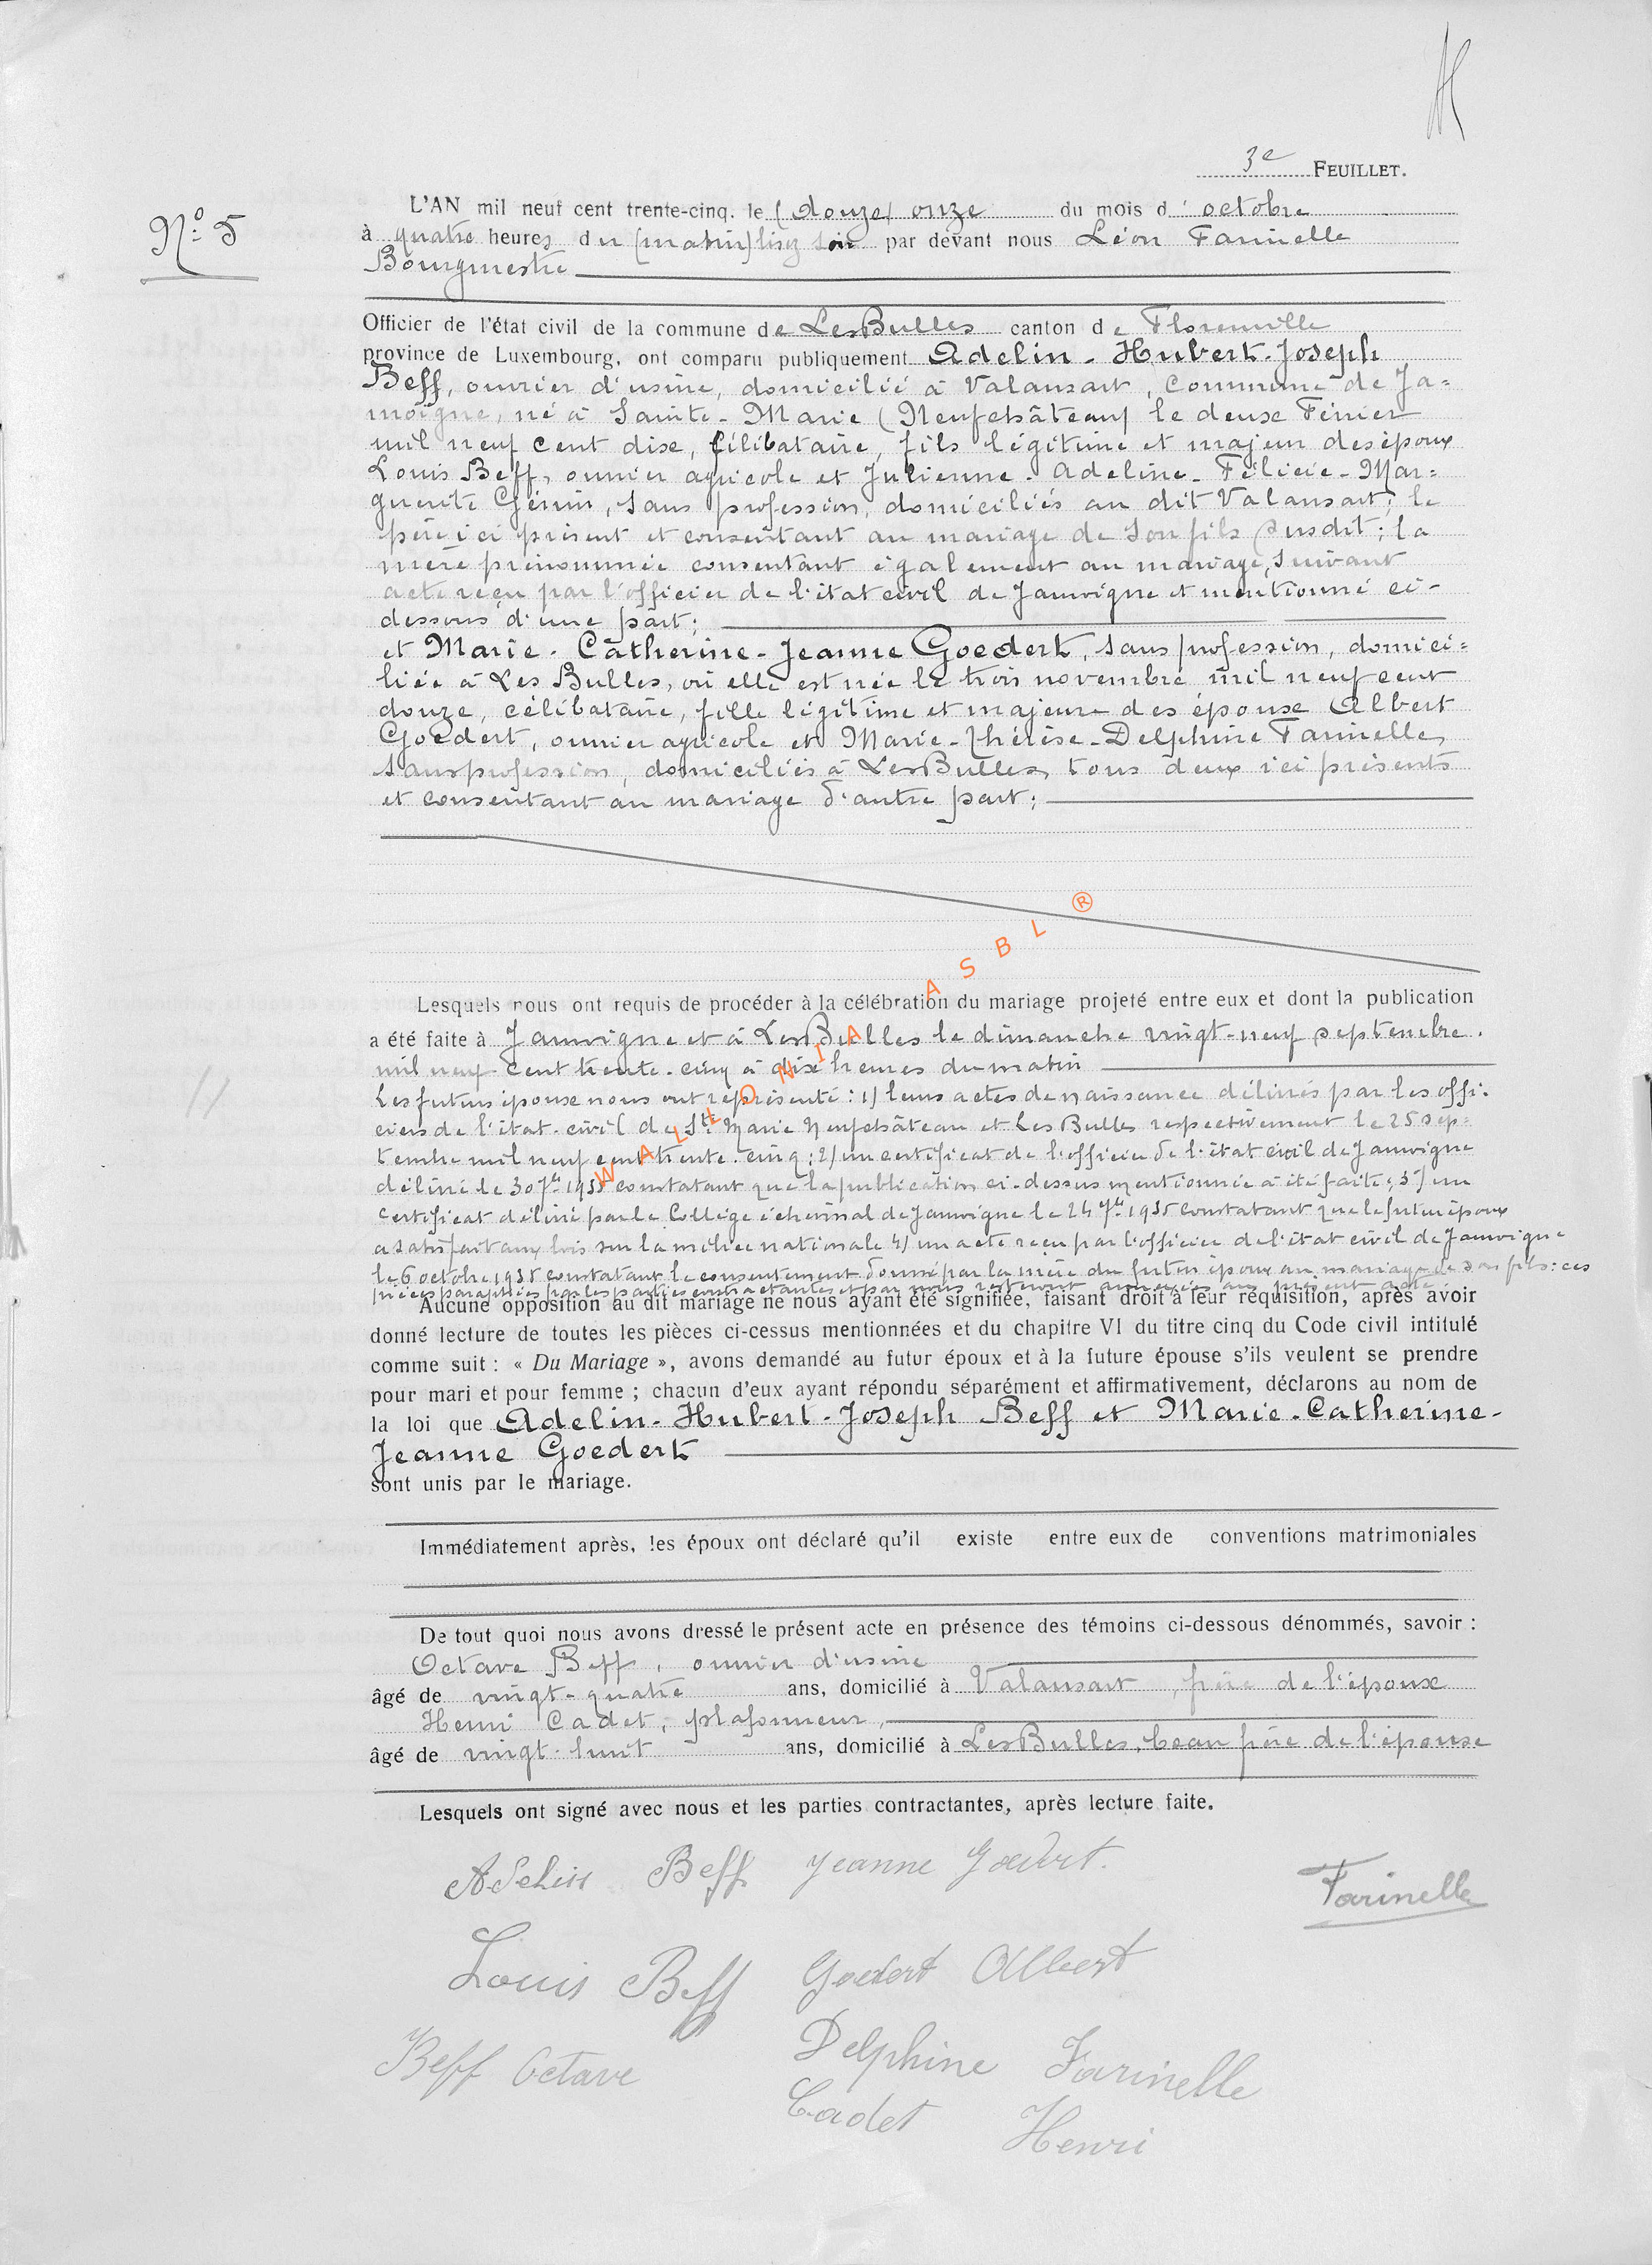 3e FEUILLET.
N° 5
L'AN mil neuf cent trente-cinq. le (douze) onze du mois d' octobre
à quatre heures du (matin) lisez soir par devant nous Léon Farinelle
Bourgmestre
Officier de l'état civil de la commune de Les Bulles canton de Florenville
province de Luxembourg, ont comparu publiquement Adelin - Hubert - Joseph
Beff, ouvrier d'usine, domicilié à Valansart, commune de Ja=
moigne, né à Sainte-Marie (Neufchâteau) le deux Février
mil neuf cent dix, célibataire, fils légitime et majeur des époux
Louis Beff, ouvrier agricole et Julienne - Adeline - Félicie - Mar=
guerite Génin, sans profession, domiciliés au dit Valansart; le
père ici présent et consentant au mariage de son fils susdit; la
mère prénommée consentant également au mariage, suivant
acte reçu par l'officier de l'état civil de Jamoigne et mentionné ci-
dessous d'une part;
et Marie - Catherine - Jeanne Goedert, sans profession, domici=
liée à Les Bulles, où elle est née le trois novembre mil neuf cent
douze, célibataire, fille légitime et majeure des époux Albert
Goedert, ouvrier agricole et Marie - Thérèse - Delphine Farinelle,
sans profession, domiciliés à Les Bulles, tous deux ici présents
et consentant au mariage d'autre part;
WALLONIA ASBL ®
Lesquels nous ont requis de procéder à la célébration du mariage projeté entre eux et dont la publication
a été faite à Jamoigne et à Les Bulles le dimanche vingt-neuf septembre
mil neuf cent trente-cinq à dix heures du matin
Les futurs époux nous ont représenté : 1) leurs actes de naissance délivrés par les offi-
ciers de l'état-civil de Ste Marie Neufchâteau et Les Bulles respectivement le 25 sep=
tembre mil neuf cent trente-cinq; 2) un certificat de l'officier de l'état civil de Jamoigne
délivré le 30 7bre 1935 constatant que la publication ci-dessus mentionnée a été faite; 3) un
certificat délivré par le Collège échevinal de Jamoigne le 24 7bre 1935 constatant que le futur époux
a satisfait aux lois sur la milice nationale 4) un acte reçu par l'officier de l'état civil de Jamoigne
le 6 octobre 1935 constatant le consentement donné par la mère du futur époux au mariage de son fils: ces
pièces paraphées par les parties contractantes et par nous resteront annexées au présent acte.
Aucune opposition au dit mariage ne nous ayant été signifiée, faisant droit à leur réquisition, après avoir
donné lecture de toutes les pièces ci-cessus mentionnées et du chapitre VI du titre cinq du Code civil intitulé
comme suit : « Du Mariage », avons demandé au futur époux et à la future épouse s'ils veulent se prendre
pour mari et pour femme ; chacun d'eux ayant répondu séparément et affirmativement, déclarons au nom de
la loi que Adelin - Hubert - Joseph Beff et Marie - Catherine -
Jeanne Goedert
sont unis par le mariage.
Immédiatement après, les époux ont déclaré qu'il existe entre eux de conventions matrimoniales
De tout quoi nous avons dressé le présent acte en présence des témoins ci-dessous dénommés, savoir :
Octave Beff, ouvrier d'usine
âgé de vingt-quatre ans, domicilié à Valansart, frère de l'époux
Henri Cadet, plafonneur,
âgé de vingt-huit ans, domicilié à Les Bulles, beau frère de l'épouse
Lesquels ont signé avec nous et les parties contractantes, après lecture faite.
Adelin Beff Jeanne Goedert.
Farinelle
Louis Beff Goedert Albert
Beff Octave Delphine Farinelle
Cadet Henri